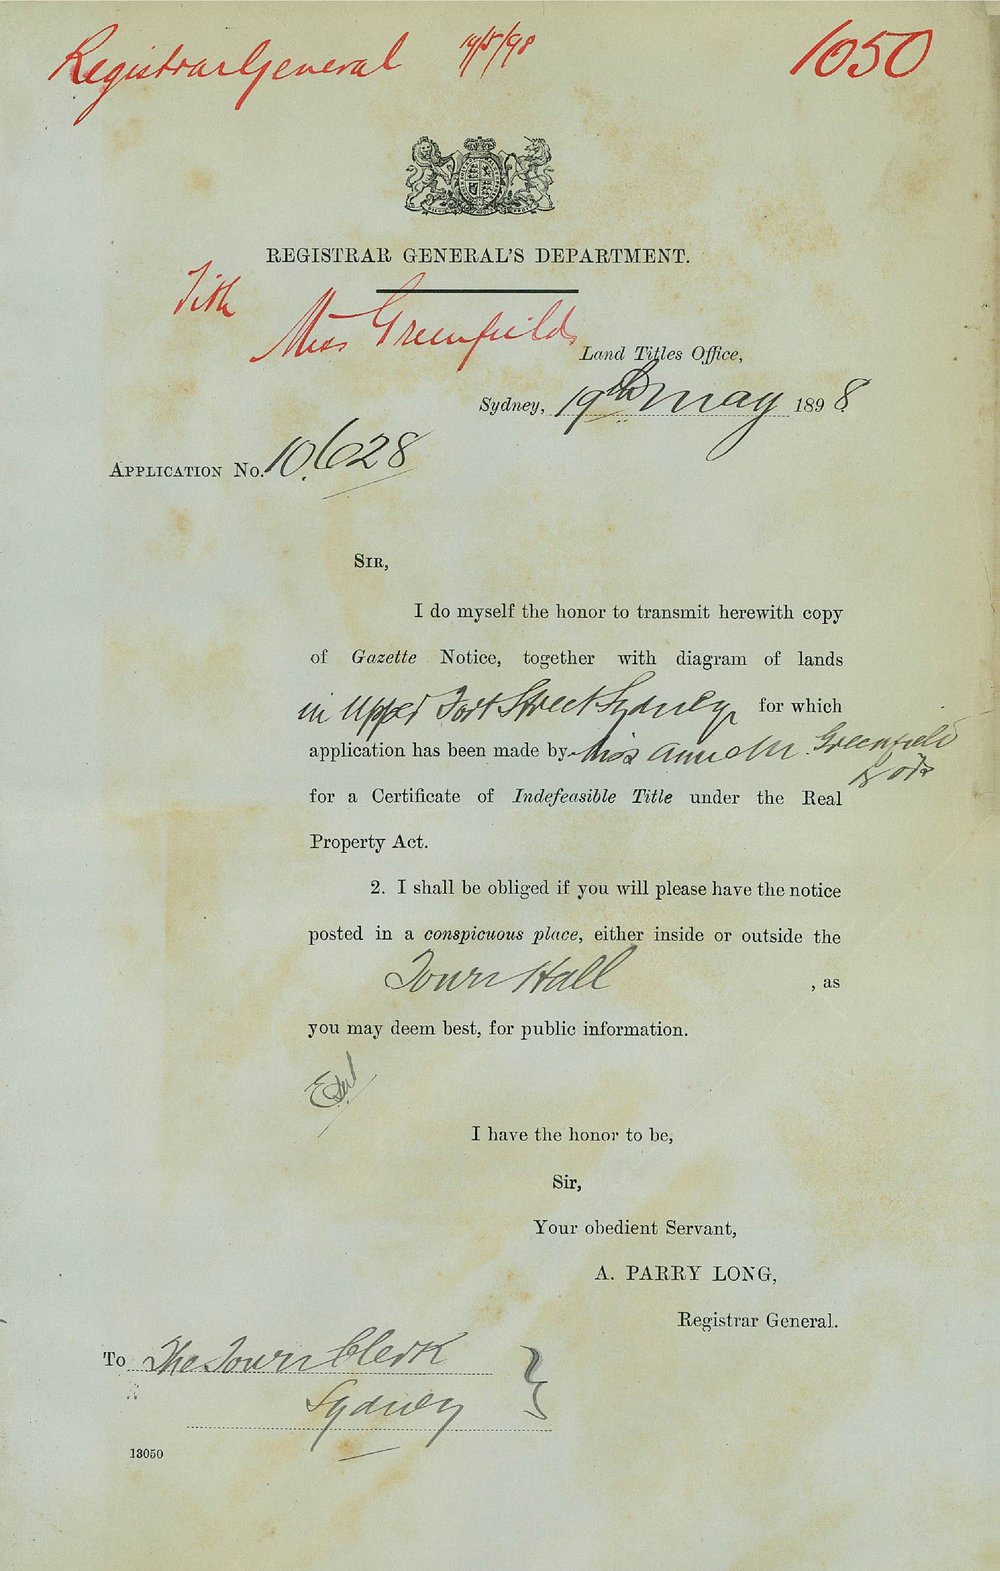 Registrar General 19/5/98 1050
REGISTRAR GENERAL'S DEPARTMENT.
Title
Miss Greenfields
Land Titles Office,
Sydney, 19th May 1898
APPLICATION No. 10,628
SIR,
I do myself the honor to transmit herewith copy
of Gazette Notice, together with diagram of lands
in Upper Fort Street Sydney for which
application has been made by Miss Annie M. Greenfield
& ors
for a Certificate of Indefeasible Title under the Real
Property Act.
2. I shall be obliged if you will please have the notice
posted in a conspicuous place, either inside or outside the
Town Hall , as
you may deem best, for public information.
I have the honor to be,
Sir,
Your obedient Servant,
A. PARRY LONG,
Registrar General.
To The Town Clerk
Sydney
13050